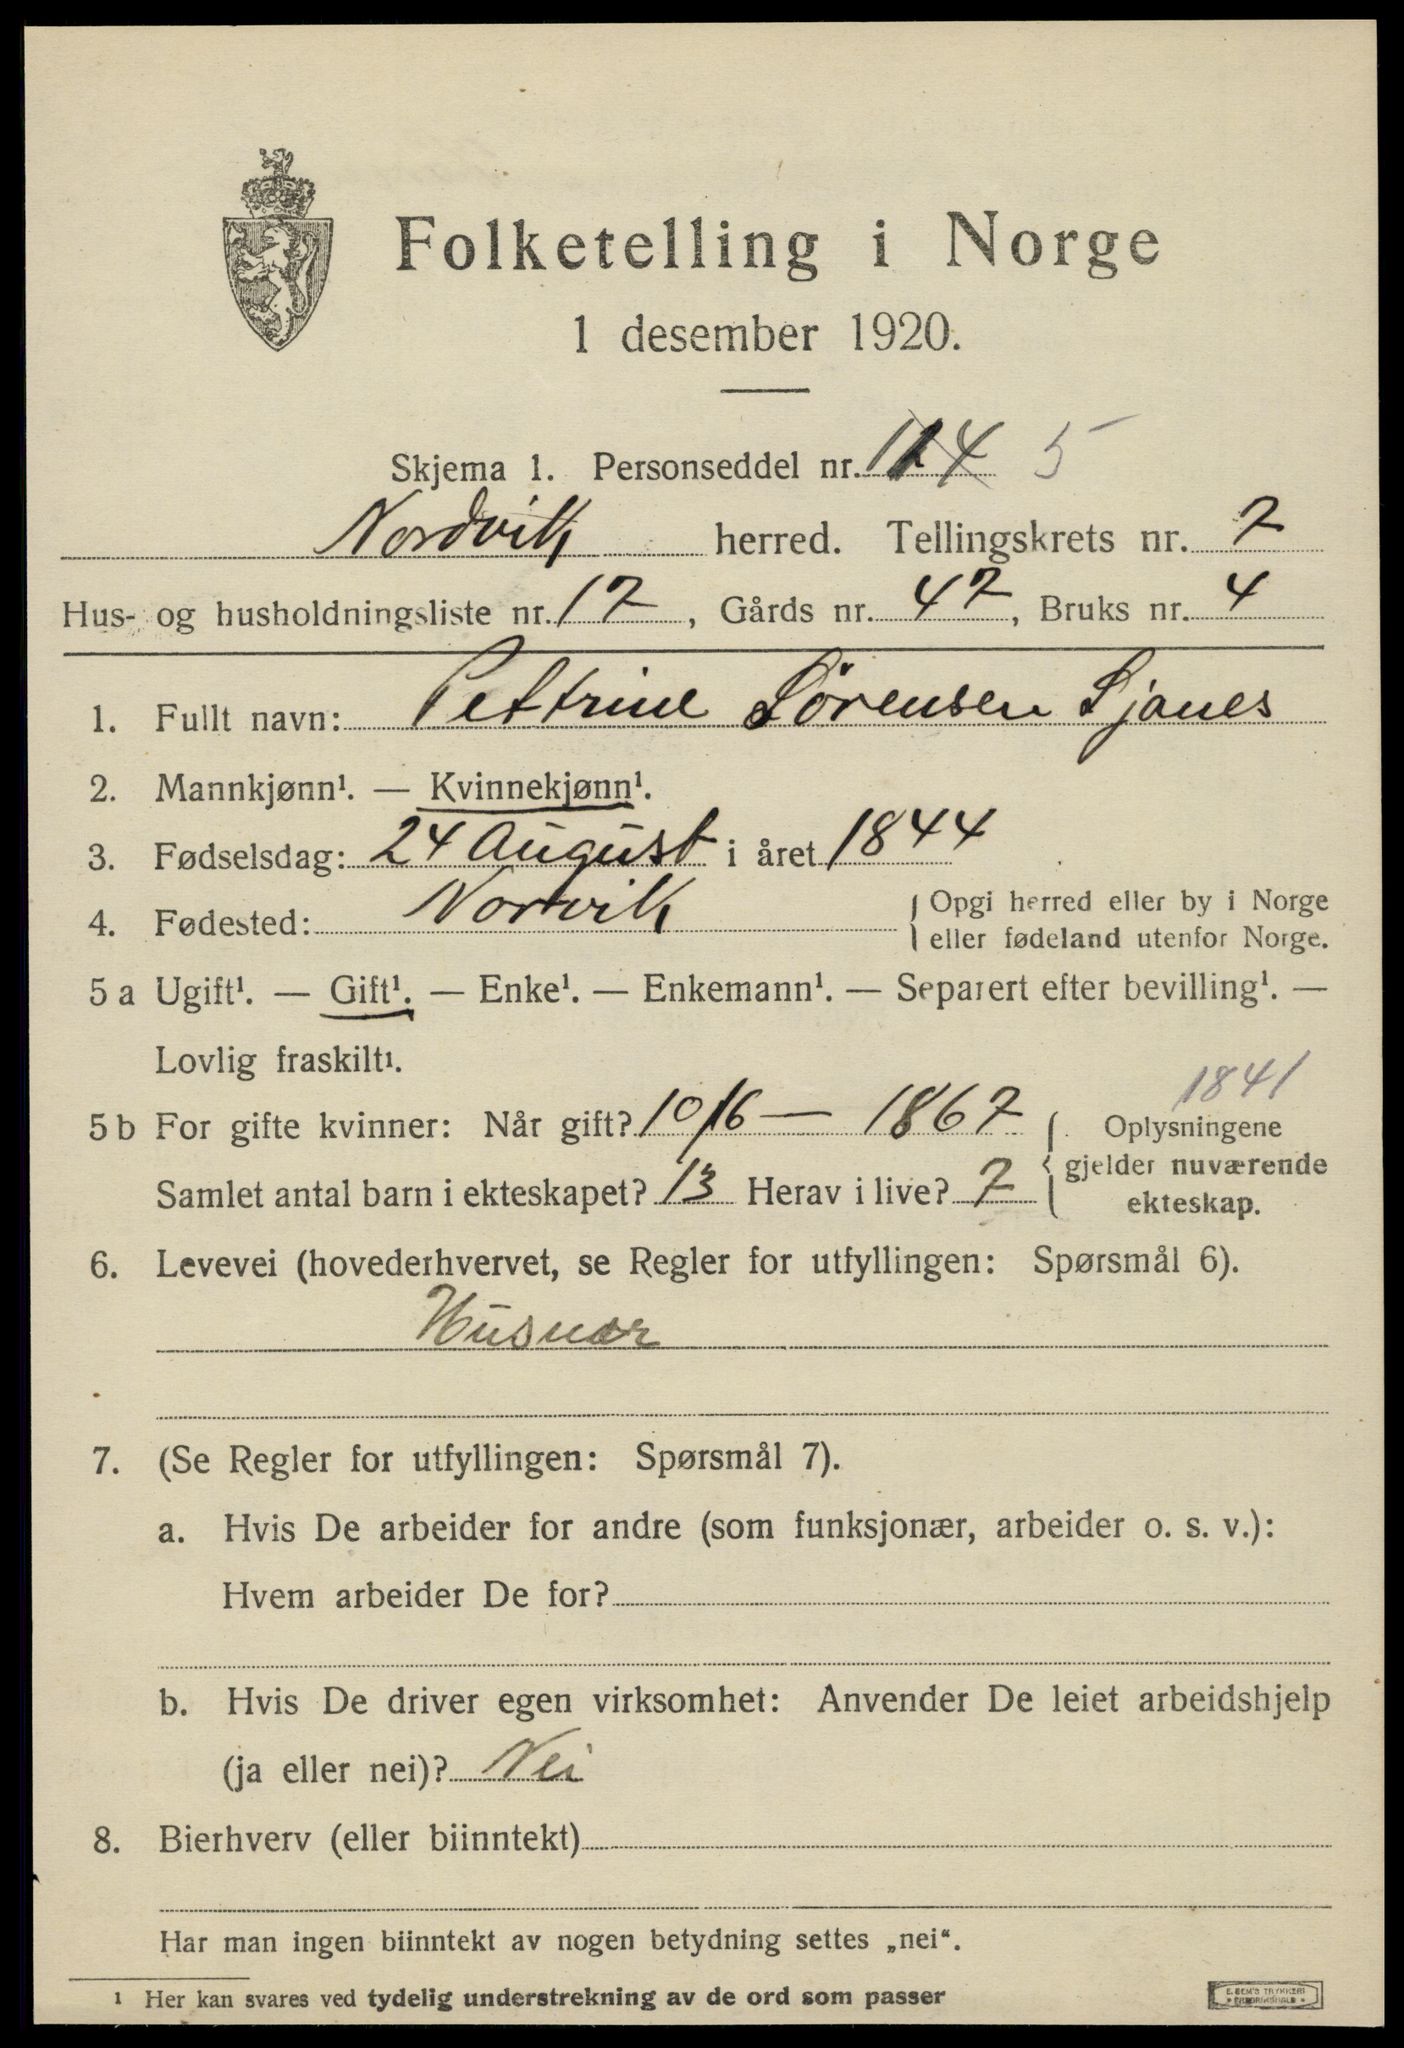 Folketelling i Norge
1 desember 1920.
Skjema 1. Personseddel nr. 114 5
Nordvik herred. Tellingskrets nr. 7
Hus- og husholdningsliste nr. 17, Gårds nr. 47, Bruks nr. 4
1. Fullt navn: Pettrine Sörensen Sjånes
2. Mannkjønn¹. — Kvinnekjønn¹.
3. Fødselsdag: 24 August i året 1844
4. Fødested: Norvik { Opgi herred eller by i Norge
eller fødeland utenfor Norge.
5 a Ugift¹. — Gift¹. — Enke¹. — Enkemann¹. — Separert efter bevilling¹. —
Lovlig fraskilt¹.
1841
5 b For gifte kvinner: Når gift? 10/6 — 1867 { Oplysningene
gjelder nuværende
Samlet antal barn i ekteskapet? 13 Herav i live? 7
ekteskap.
6. Levevei (hovederhvervet, se Regler for utfyllingen: Spørsmål 6).
Husmor
7. (Se Regler for utfyllingen: Spørsmål 7).
a. Hvis De arbeider for andre (som funksjonær, arbeider o. s. v.):
Hvem arbeider De for?
b. Hvis De driver egen virksomhet: Anvender De leiet arbeidshjelp
(ja eller nei)? Nei
8. Bierhverv (eller biinntekt)
Har man ingen biinntekt av nogen betydning settes „nei“.
¹ Her kan svares ved tydelig understrekning av de ord som passer
E. SEM'S TRYKKERI
FREDRIKSHALD